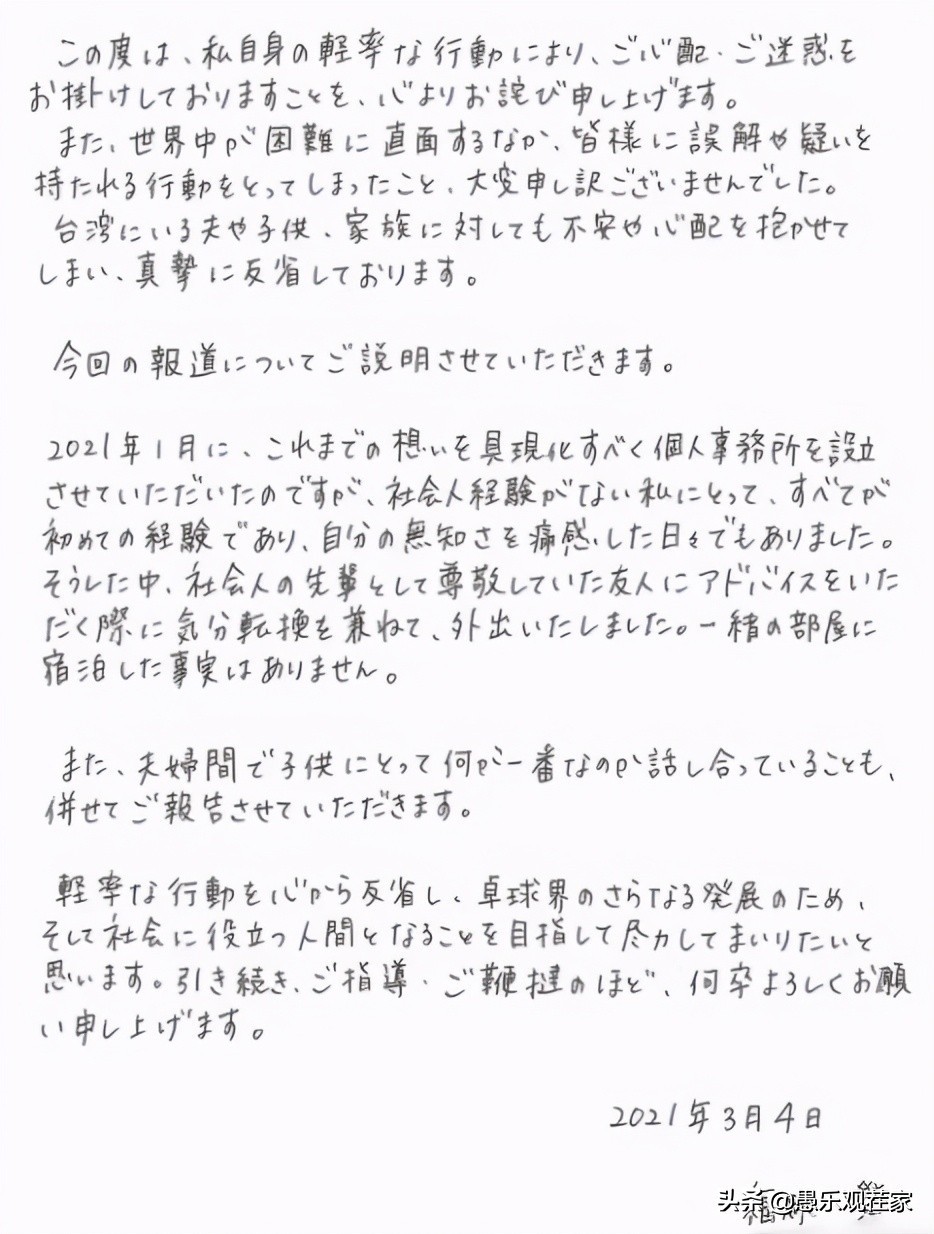 この度は、私自身の軽率な行動により、ご心配・ご迷惑を
お掛けしておりますことを、心よりお詫び申し上げます。
また、世界中が困難に直面するなか、皆様に誤解や疑いを
持たれる行動をとってしまったこと、大変申し訳ございませんでした。
台湾にいる夫や子供、家族に対しても不安や心配を抱かせて
しまい、真摯に反省しております。
今回の報道についてご説明させていただきます。
2021年1月に、これまでの想いを具現化すべく個人事務所を設立
させていただいたのですが、社会人経験がない私にとって、すべてが
初めての経験であり、自分の無知さを痛感した日々でもありました。
そうした中、社会人の先輩として尊敬していた友人にアドバイスをいた
だく際に気分転換を兼ねて、外出いたしました。一緒の部屋に
宿泊した事実はありません。
また、夫婦間で子供にとって何が一番なのか話し合っていることも、
併せてご報告させていただきます。
軽率な行動を心から反省し、卓球界のさらなる発展のため、
そして社会に役立つ人間となることを目指して尽力してまいりたいと
思います。引き続き、ご指導・ご鞭撻のほど、何卒よろしくお願
い申し上げます。
2021年3月4日
头条@愚乐观茬家